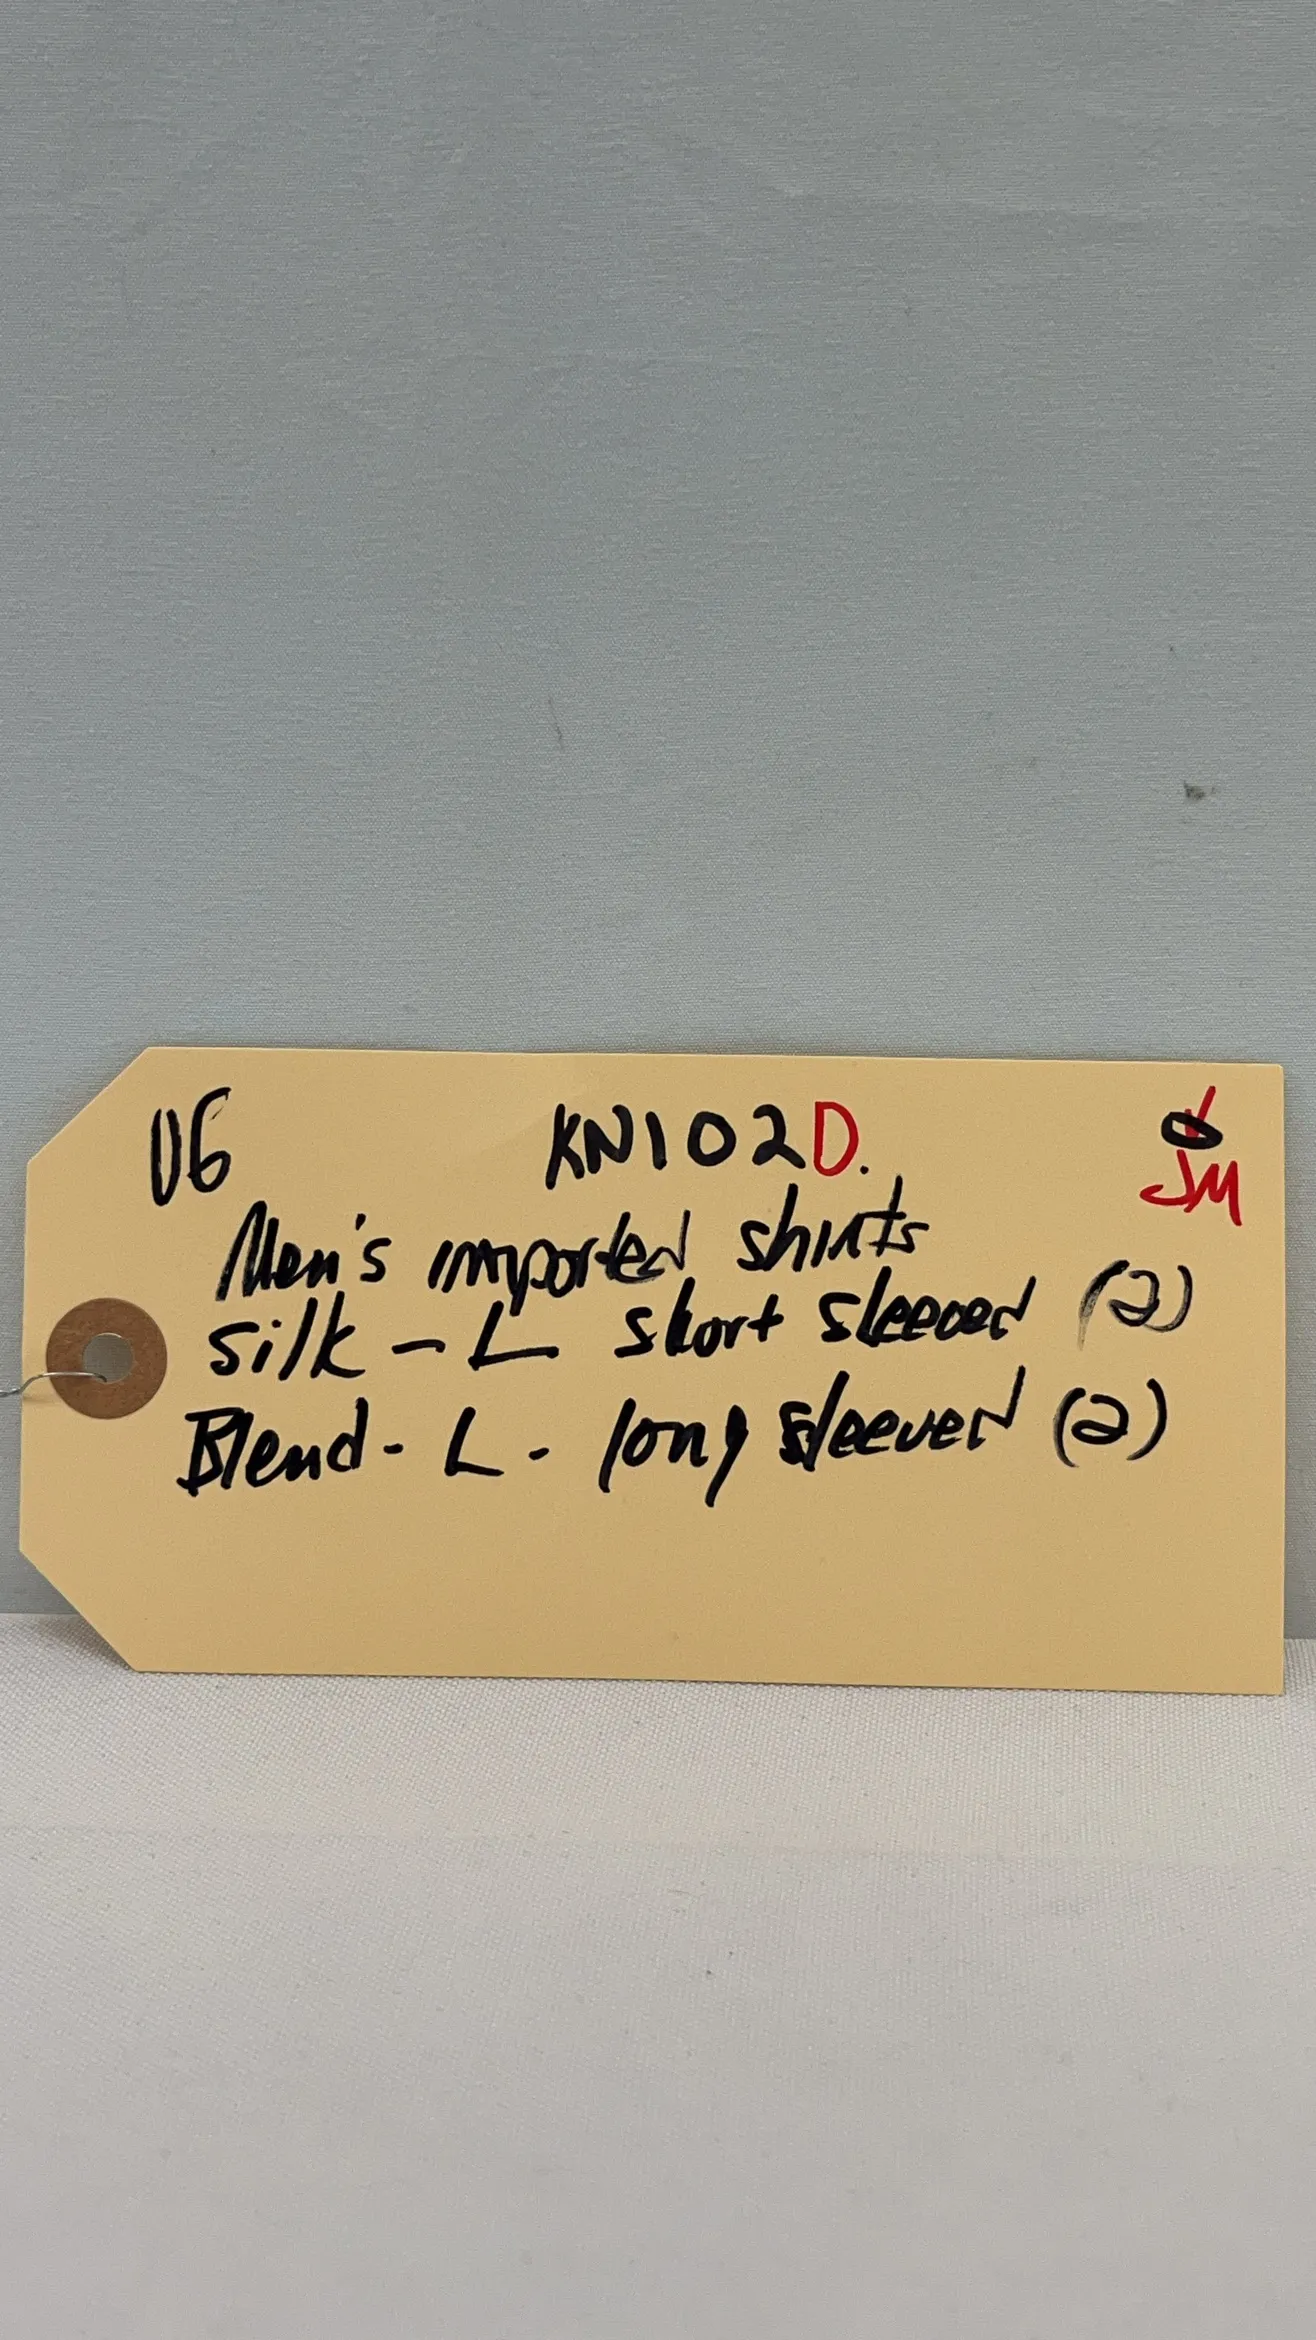 VG KN102D.
JM
Men's imported shirts
silk - L short sleeved (2)
Blend - L - long sleeved (2)